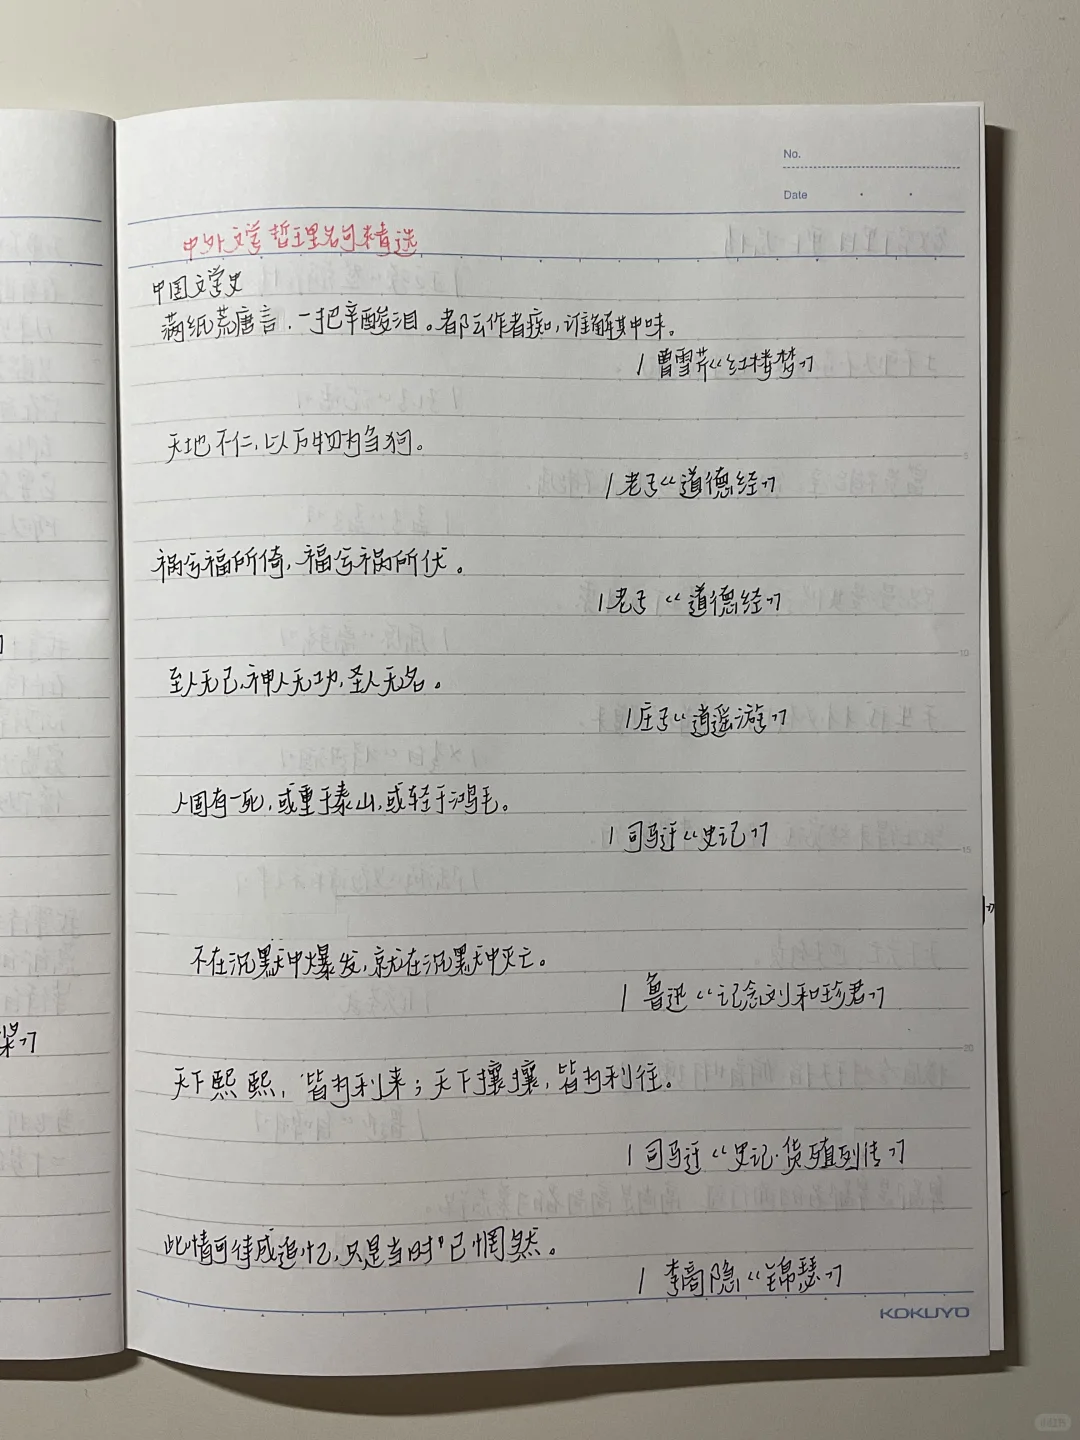 No.
Date
中外文学哲理名句精选
中国文学史
满纸荒唐言,一把辛酸泪。都云作者痴,谁解其中味。
/ 曹雪芹《红楼梦》
天地不仁,以万物为刍狗。
/ 老子《道德经》
祸兮福所倚,福兮祸所伏。
/ 老子《道德经》
至人无己,神人无功,圣人无名。
/ 庄子《逍遥游》
人固有一死,或重于泰山,或轻于鸿毛。
/ 司马迁《史记》
不在沉默中爆发,就在沉默中灭亡。
/ 鲁迅《记念刘和珍君》
天下熙熙,皆为利来;天下攘攘,皆为利往。
/ 司马迁《史记·货殖列传》
此情可待成追忆,只是当时已惘然。
/ 李商隐《锦瑟》
KOKUYO